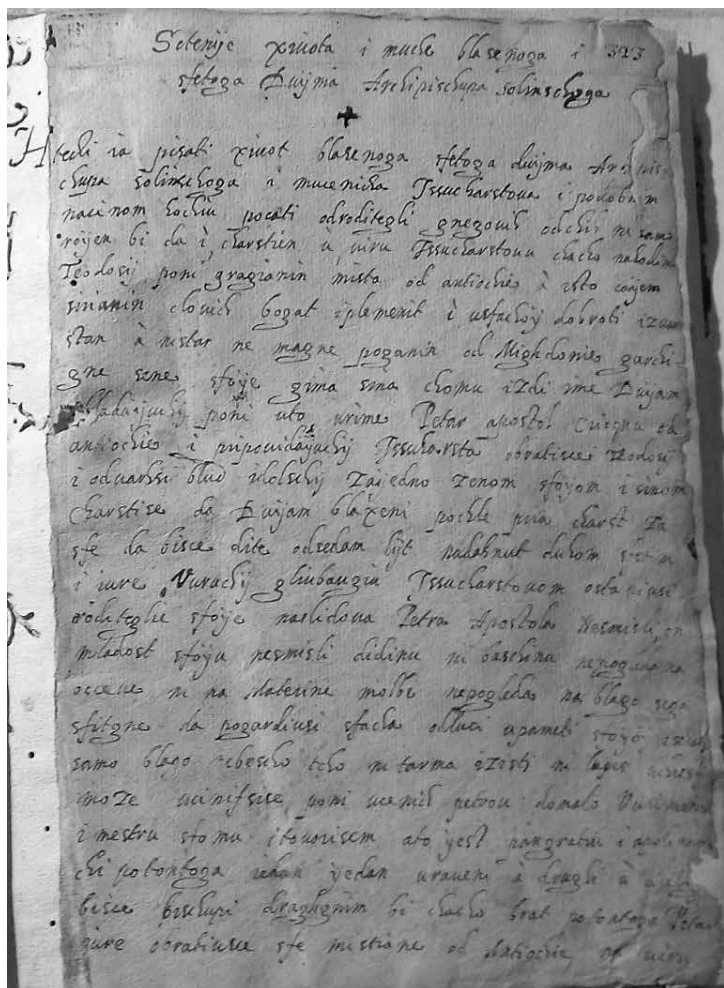 Sctenije xivota i muche blasenoga i 323
sfetoga Duyma Archipischupa solinschoga
Htechi ia pisati xivot blasenoga sfetoga duyma Archipis
chupa solinschoga i mucenicha Issucharstova i podobnim
nacinom hochiu poceti odroditegli gnegovih odchih ni samo
royen bi da i charstien u viru Issucharstovu chacho nahodimo
Teodosij poni gragianin mista od antiochie à isto
sirianin clovich bogat i plemenit i usfachoj dobroti izvar
stan à nistar ne magne poganin od Mighdonie garchi
gne xene sfoje gima sina chomu izdi ime Duyam
poni uto vrime Petar apostol Criequu od
antiochie i pripovidajuchij Issucharsta obratiuse Teodosij
i odvarhsi blud idolschij zajedno xenom sfojom i sinom
charstise da Duyam blaxeni pochle pria charst za
sfe da bisce dite odsedam lijt nadahnut duhom sfetim
i iure Vuruchij gliubavgiu Issucharstovom ostavivsi
roditeglie sfoje naslidova Petra Apostola Nesmisli on
mladost sfoju nesmisli didinu ni baschinu nepogleda na
occeve ni na Materine molbe nepogleda na blago sega
sfitgne da pogardivsi sfacha odluci upameti sfojoj
samo blago nebescho tcho ni tarma izisti ni lupex
moze ucinifsise poni ucenich petrov domalo
i mestru sfomu itovorisem ato yest pangratui i apolinaru
chi potontoga iedan yedan uraveni à dragli à
bisce bischupi draghgnim bi chacho brat potontoga Petar
jure obratiusce sfe mistione od Antiochie na viru